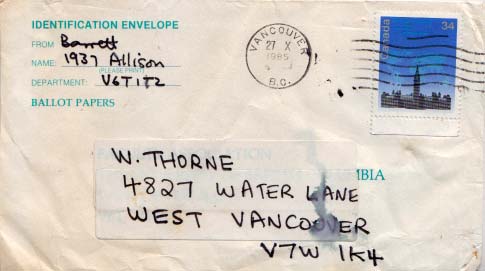 IDENTIFICATION ENVELOPE
FROM Barrett
NAME: 1937 Allison
(PLEASE PRINT)
DEPARTMENT: V6T1T2
BALLOT PAPERS
VANCOUVER
27 X
1985
B.C.
Canada 34
W. THORNE
4827 WATER LANE
WEST VANCOUVER
V7W 1K4
MBIA